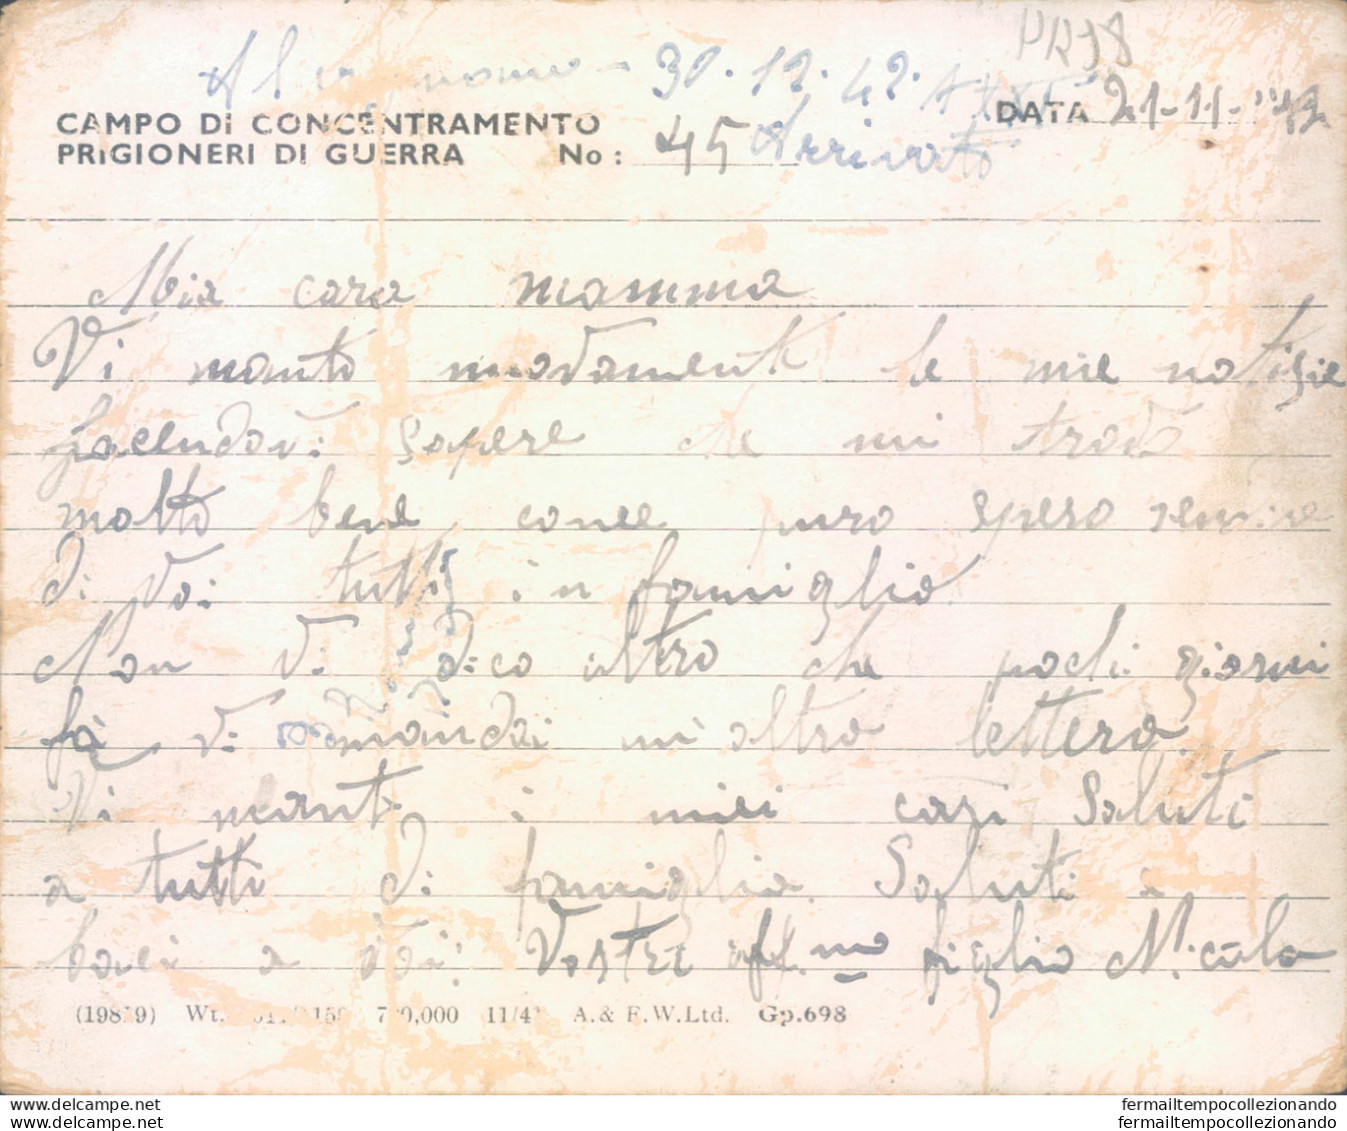 PR38
30.12.42
CAMPO DI CONCENTRAMENTO DATA 21-11-42
PRIGIONERI DI GUERRA No: 45 Arrivato
Mia cara mamma
Vi manto nuovamente le mie notizie
facendovi sapere che mi trovo
molto bene come puro spero sempre
di voi tutti in famiglia.
Non vi dico altro che pochi giorni
fà vi mandai un'altra lettera.
Vi manto i miei cari saluti
a tutti di famiglia. Saluti e
baci a voi Vostro aff.mo figlio Nicola
(19839) Wt. 700,000 11/4 A.& F.W.Ltd. Gp.698
www.delcampe.net fermailtempocollezionando
www.delcampe.net fermailtempocollezionando